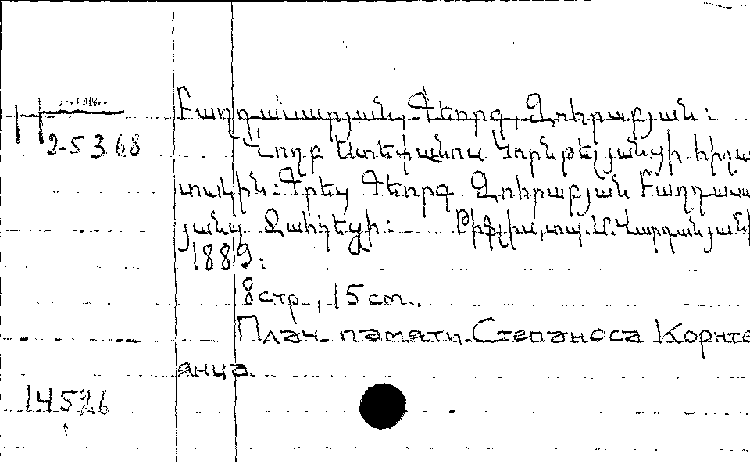 Բաղդասարյան, Գևորգ Զուրաբյան:
2-5368
Ողբ Ստեփանոս Կորնթելյանցի հիշա
տակին: Գրեց Գևորգ Զուրաբյան Բաղդասա
յանց Թիֆլիս, տպ. Մ. Վարդանյանի
1889:
8 стр., 15 cm.
Плач памяти Степаноса Корнте
янца
14526